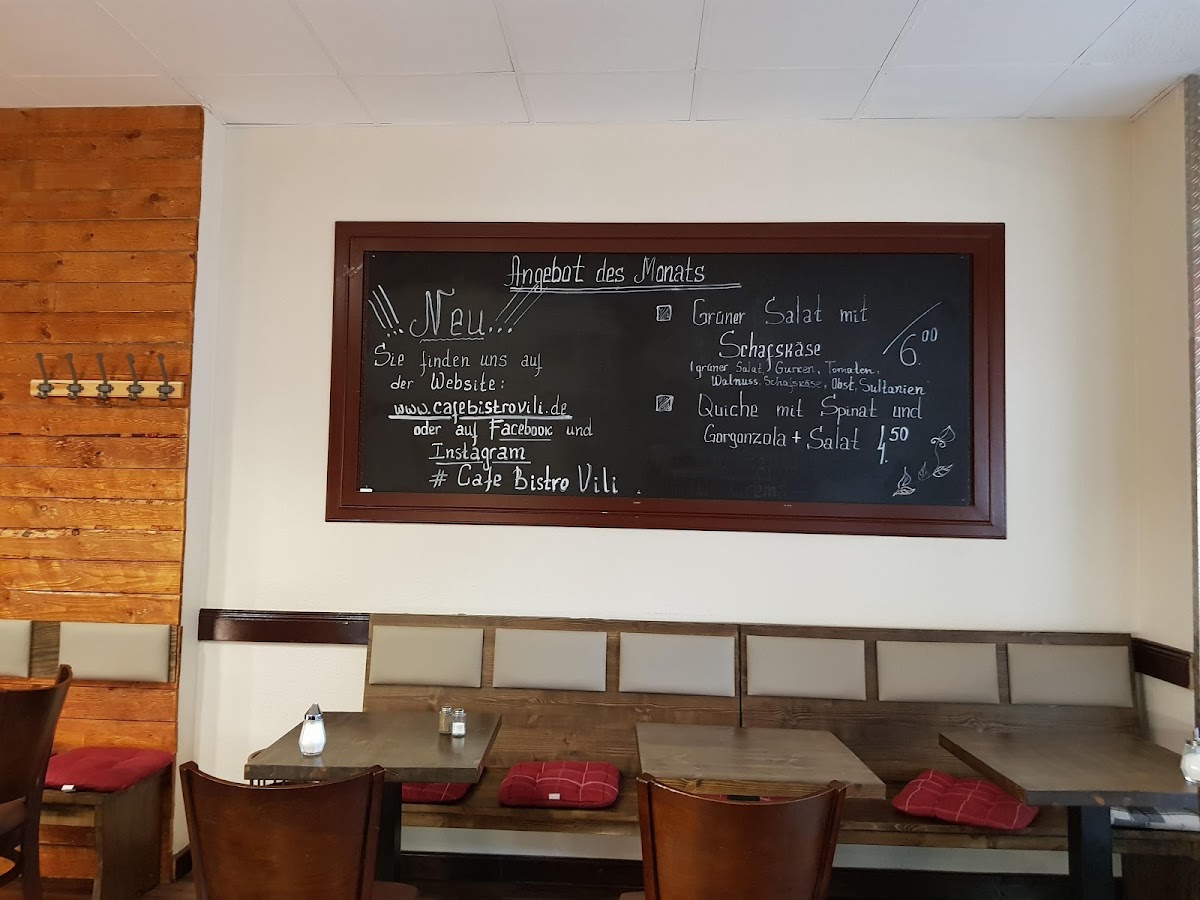 Angebot des Monats
Neu...
Sie finden uns auf
der Website:
www.cafebistrovili.de
oder auf Facebook und
Instagram
# Cafe Bistro Vili
Grüner Salat mit
Schafskäse
6.00
(grüner Salat, Gurken, Tomaten,
Walnuss, Schafskäse, Obst, Sultanien
Quiche mit Spinat und
Gorgonzola + Salat 4.50